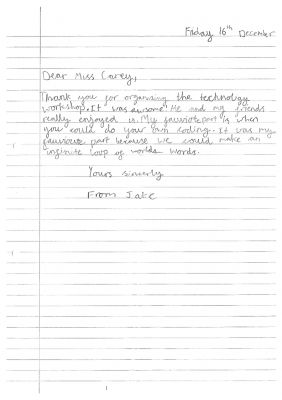 Friday 16th December
Dear Miss Carey,
Thank you for organising the technology
workshop. It was awsome! Me and my friends
really enjoyed it. My favuriote part is when
you could do your own coding. It was my
favuriote part because we could make an
infinite loop of worlds words.
Yours sincerly
From Jake